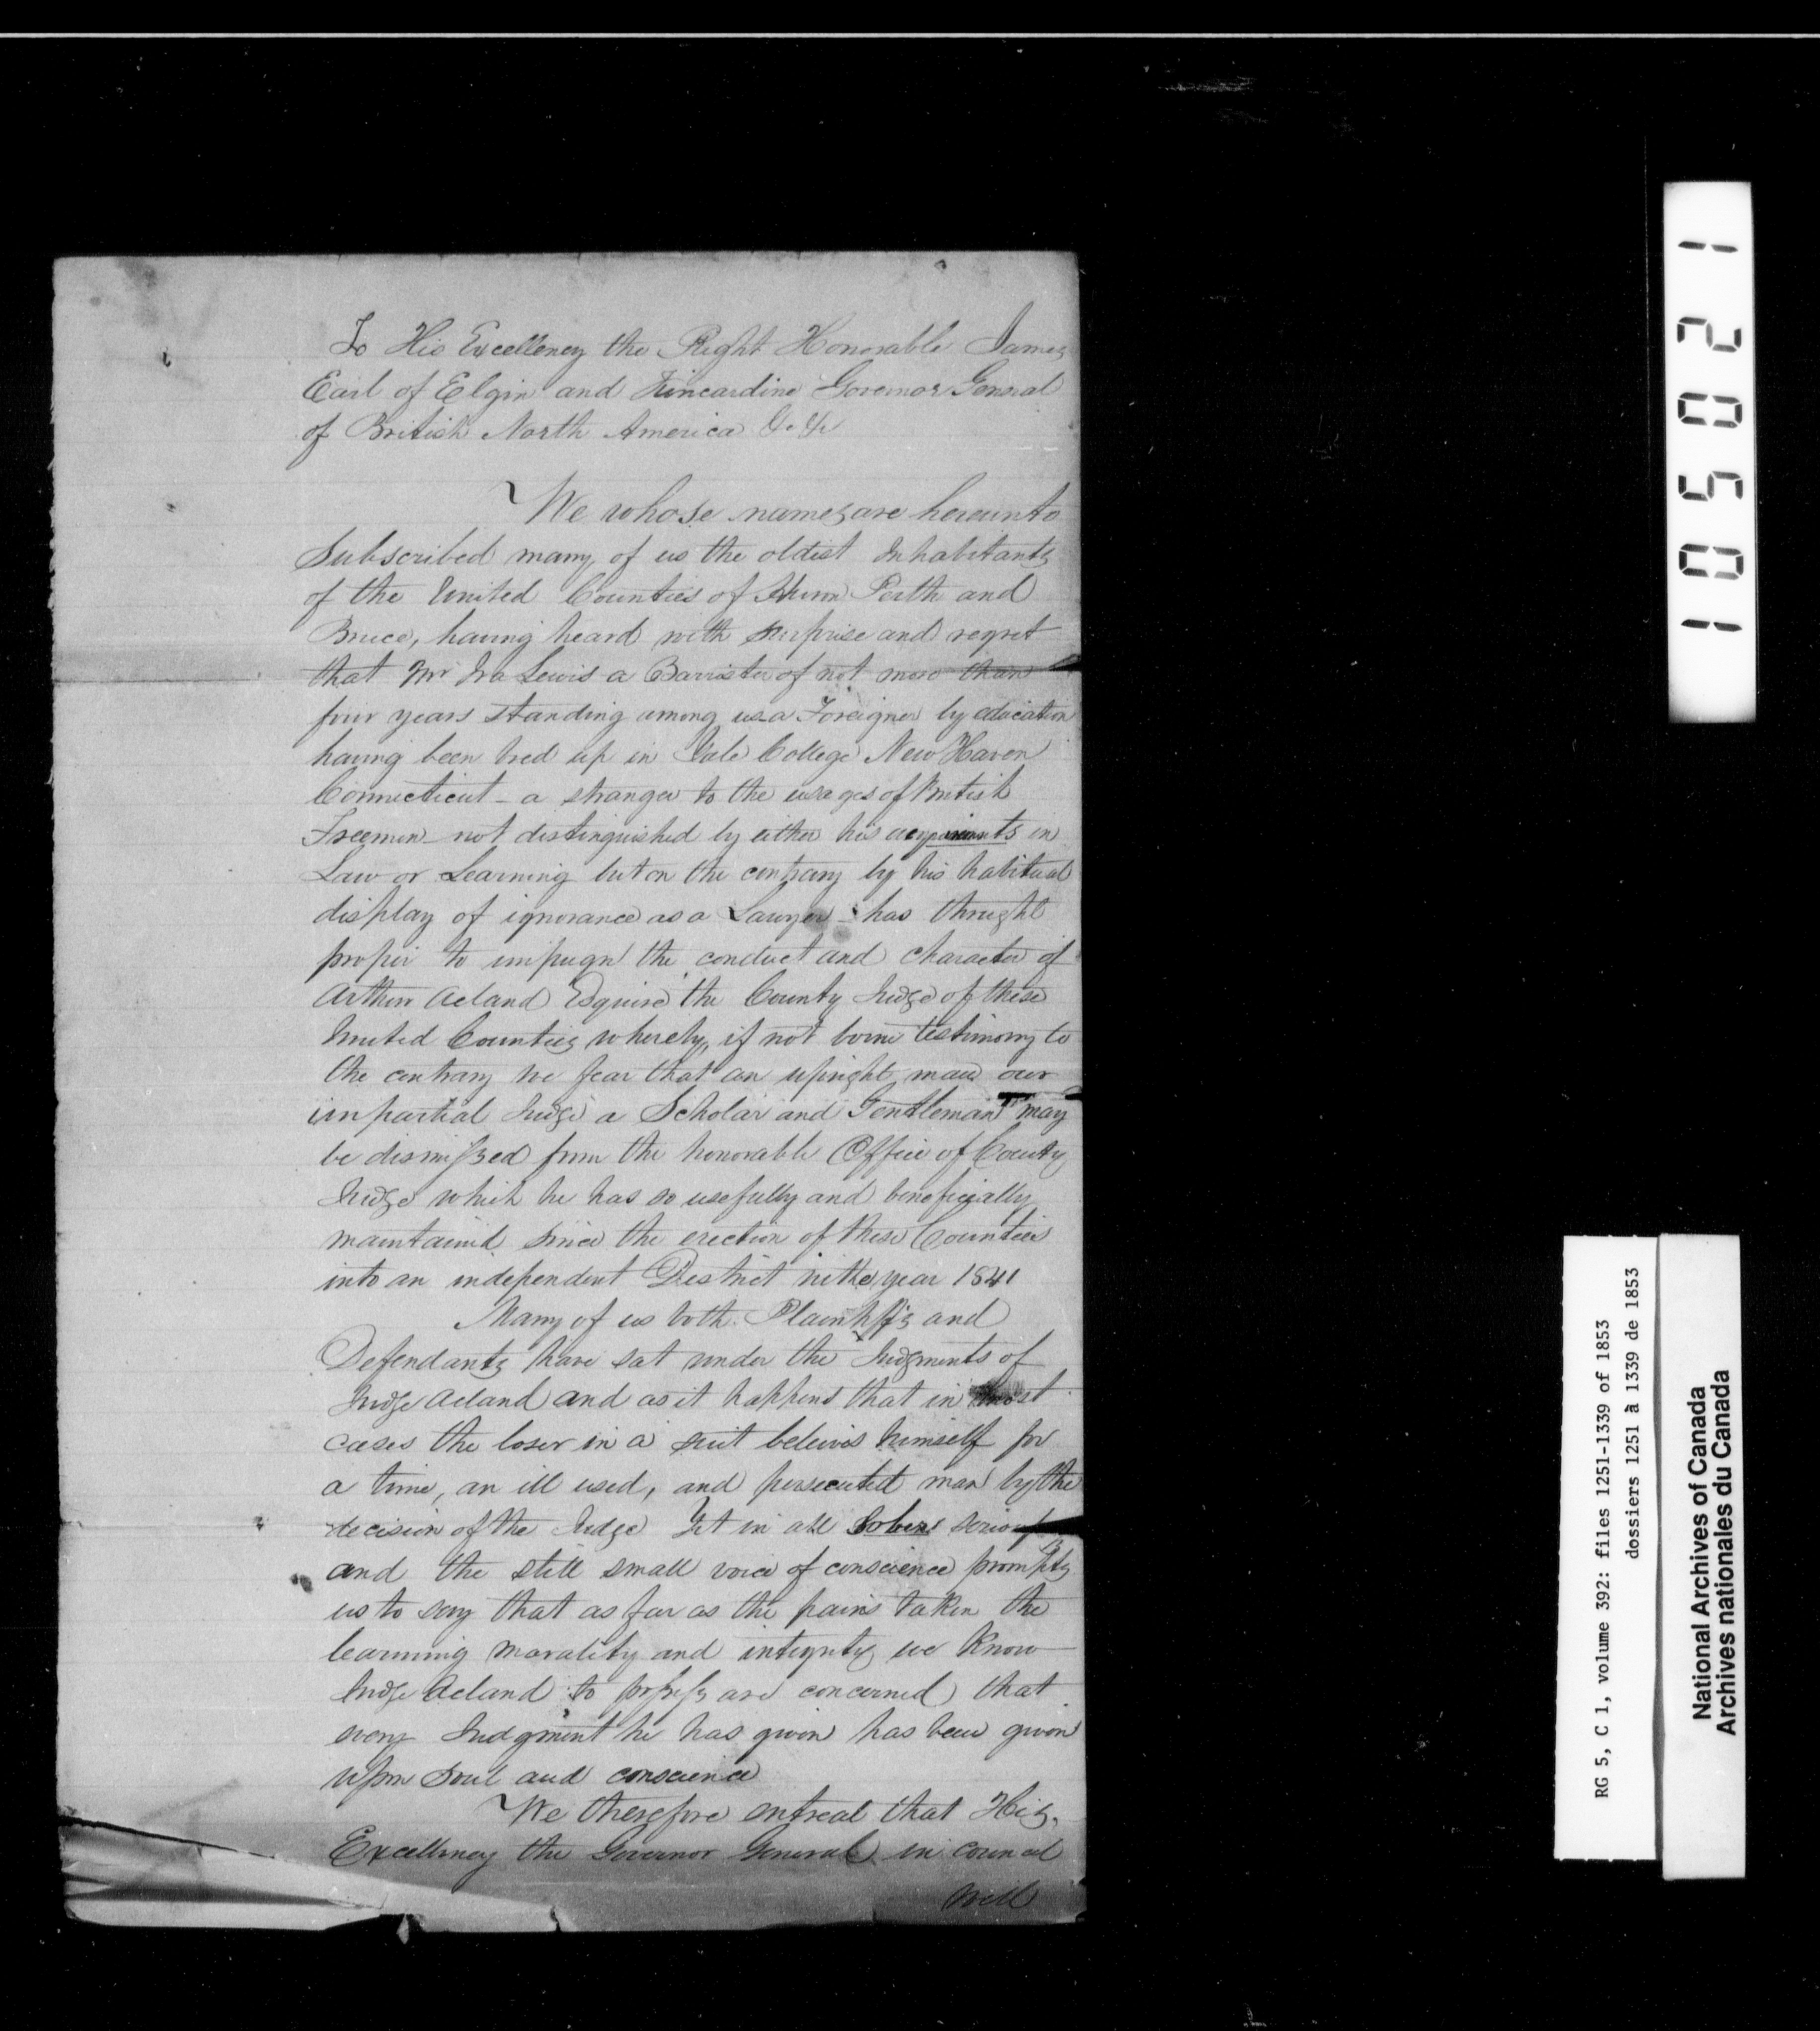 To His Excellency the Right Honorable James
Earl of Elgin and Kincardine Governor General
of British North America &c &c
We whose names are hereunto
Subscribed many of us the oldest Inhabitants
of the United Counties of Huron Perth and
Bruce, having heard with surprise and regret
that Mr Ira Lewis a Barrister of not more than
four years standing among us a Foreigner by education
having been bred up in Yale College New Haven
Connecticut - a stranger to the usages of British
Freemen - not distinguished by either his in
Law or Learning but on the contrary by his habitual
display of ignorance as a Lawyer - has thought
proper to impugn the conduct and character of
Arthur Acland Esquire the County Judge of these
United Counties whereby, if not borne testimony to
the contrary we fear that an upright man our
impartial Judge a Scholar and Gentleman may
be dismissed from the honorable Office of County
Judge which he has so usefully and beneficially
maintained since the erection of these Counties
into an independent District in the year 1841
Many of us both Plaintiffs and
Defendants have sat under the Judgments of
Judge Acland and as it happens that in most
cases the loser in a suit beleives himself for
a time, an ill used, and persecuted man by the
decision of the Judge Yet in all
and the still small voice of conscience prompts
us to say that as far as the pains taken the
learning morality and integrity we know
Judge Acland to possess are concerned that
every Judgment he has given has been given
upon Soul and conscience
We therefore entreat that His
Excellency the Governor General in council
will
105021
RG 5, C 1, volume 392: files 1251-1339 of 1853
dossiers 1251 à 1339 de 1853
National Archives of Canada
Archives nationales du Canada